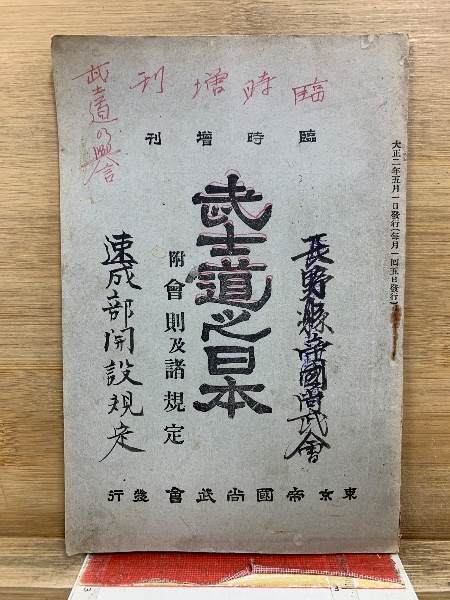 臨時増刊
臨時增刊
大正二年五月一日發行(每月一回五日發行)
長野縣帝國尚武會
武士道之日本
附會則及諸規定
速成部開設規定
武士道の
東京帝國尚武會發行